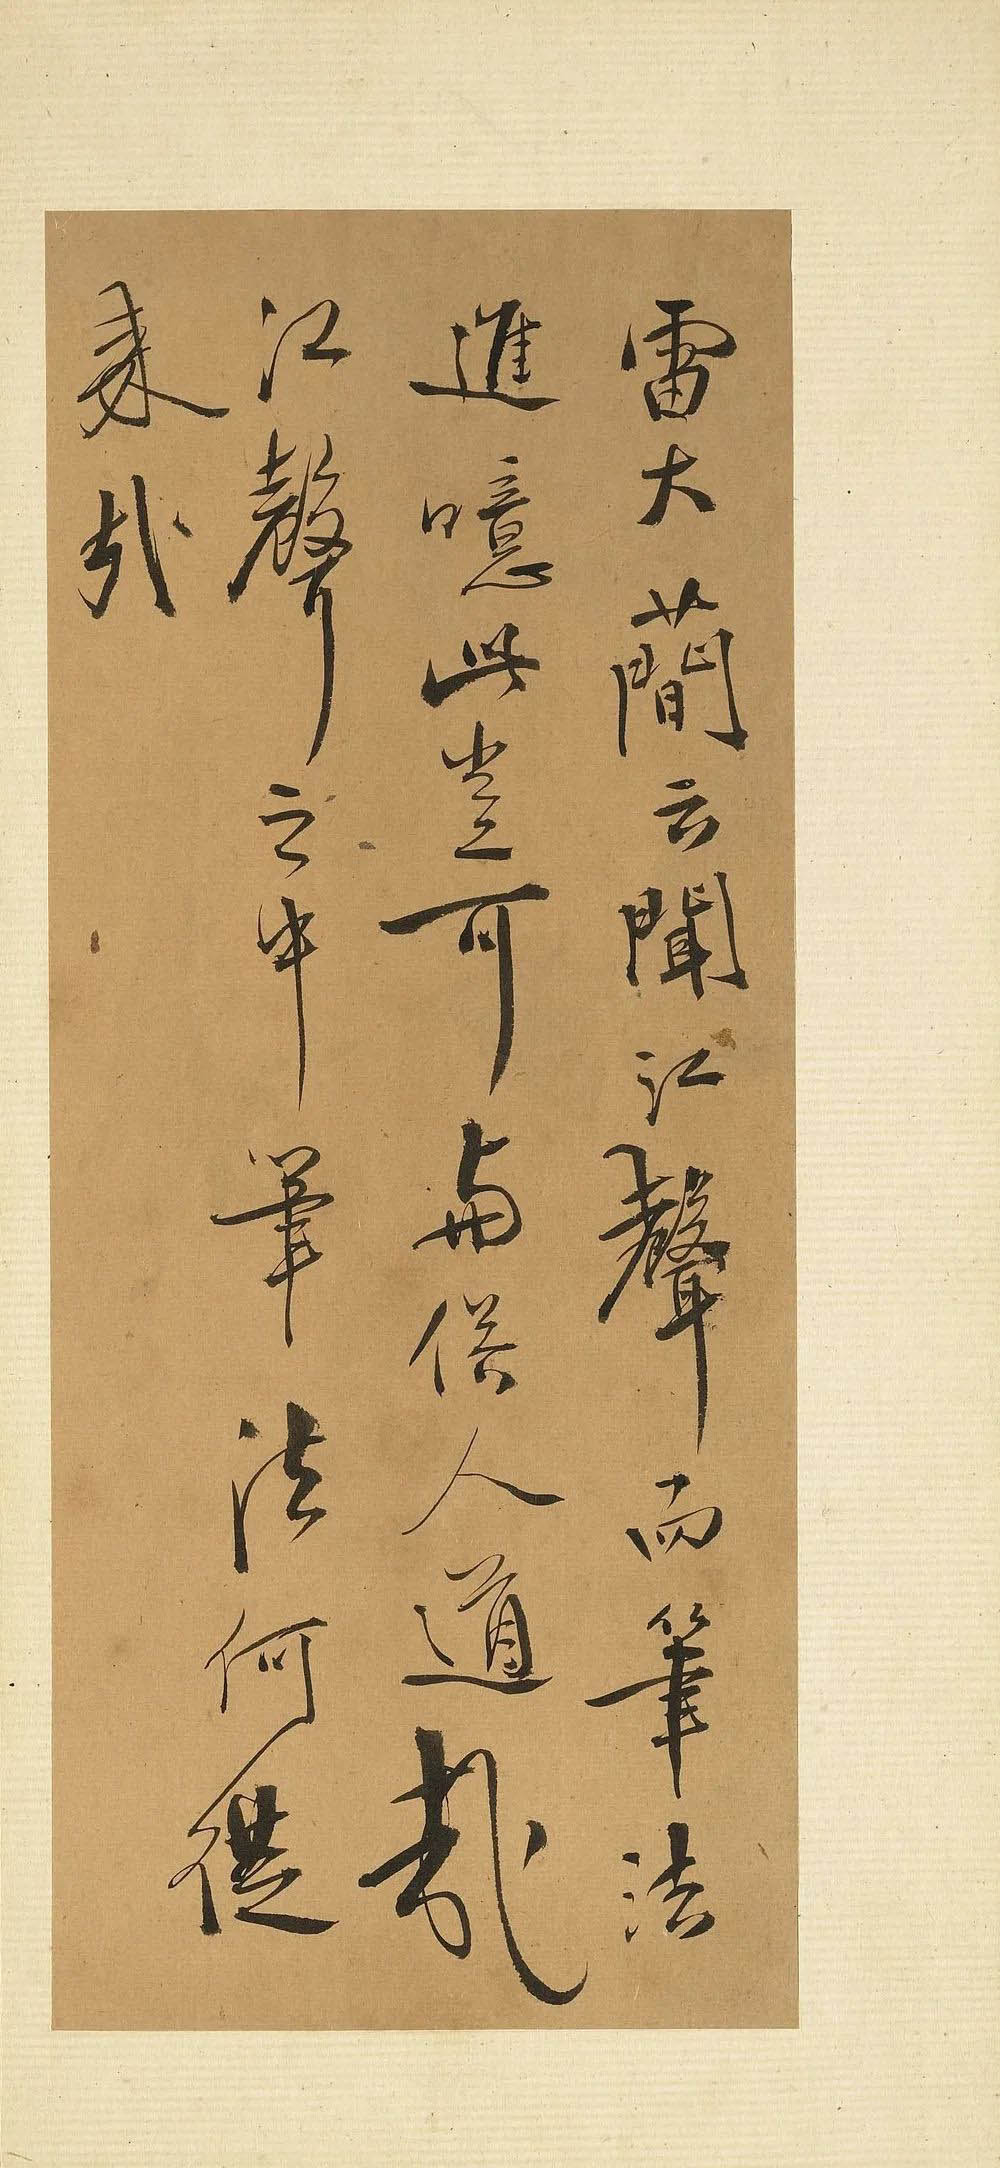 雷大蕳云聞江聲而筆法
進噫此豈可與俗人道哉
江聲之中筆法何從
來哉